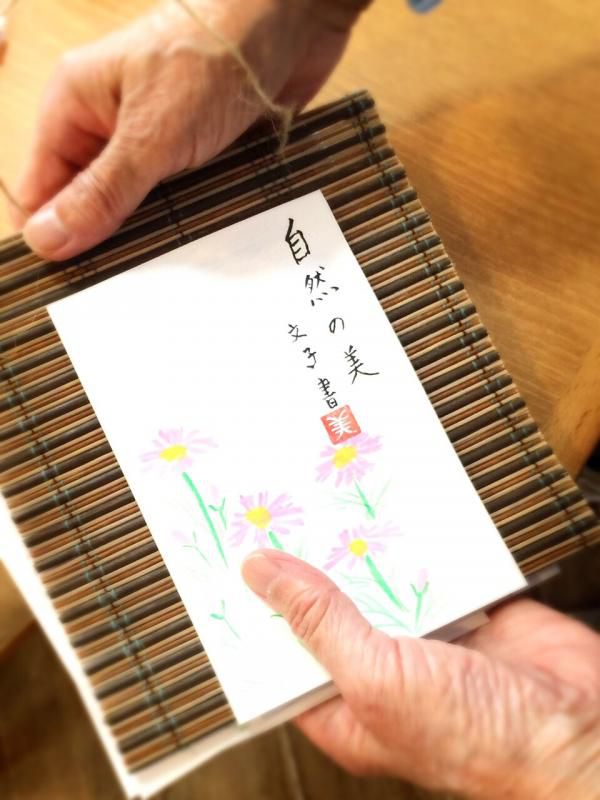 自然の美
文子書
美